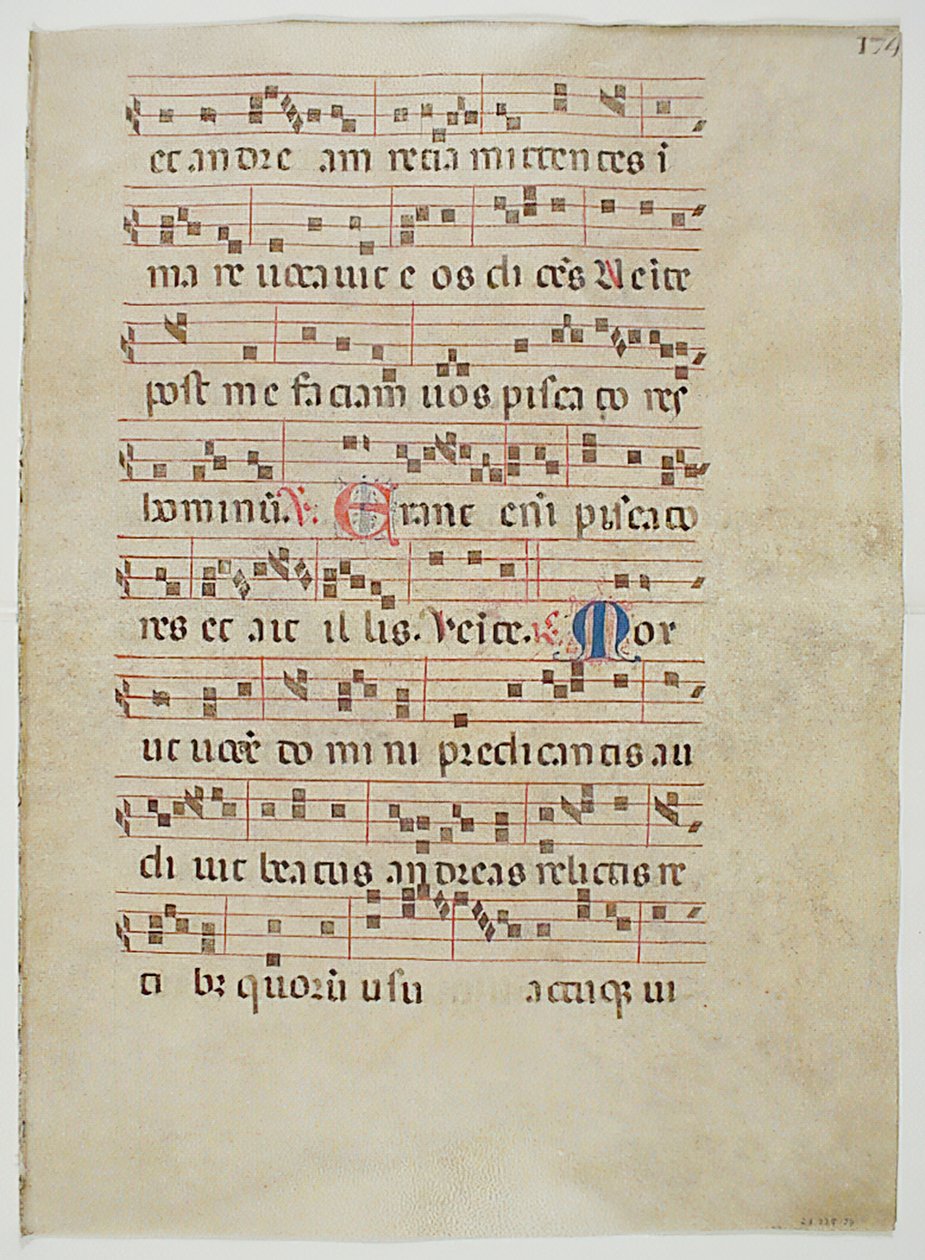 174
et andre am retia mittentes i
ma re uocauit e os di cēs Ueīte
post me faciam uos pisca to res
hominū. ℣. Erant eni piscato
res et ait il lis. Ueīte. ℟. Mox
ut uocē do mi ni predicantis au
di uit beatus andreas relictis re
ti bꝫ quorū usu actuqꝫ ui